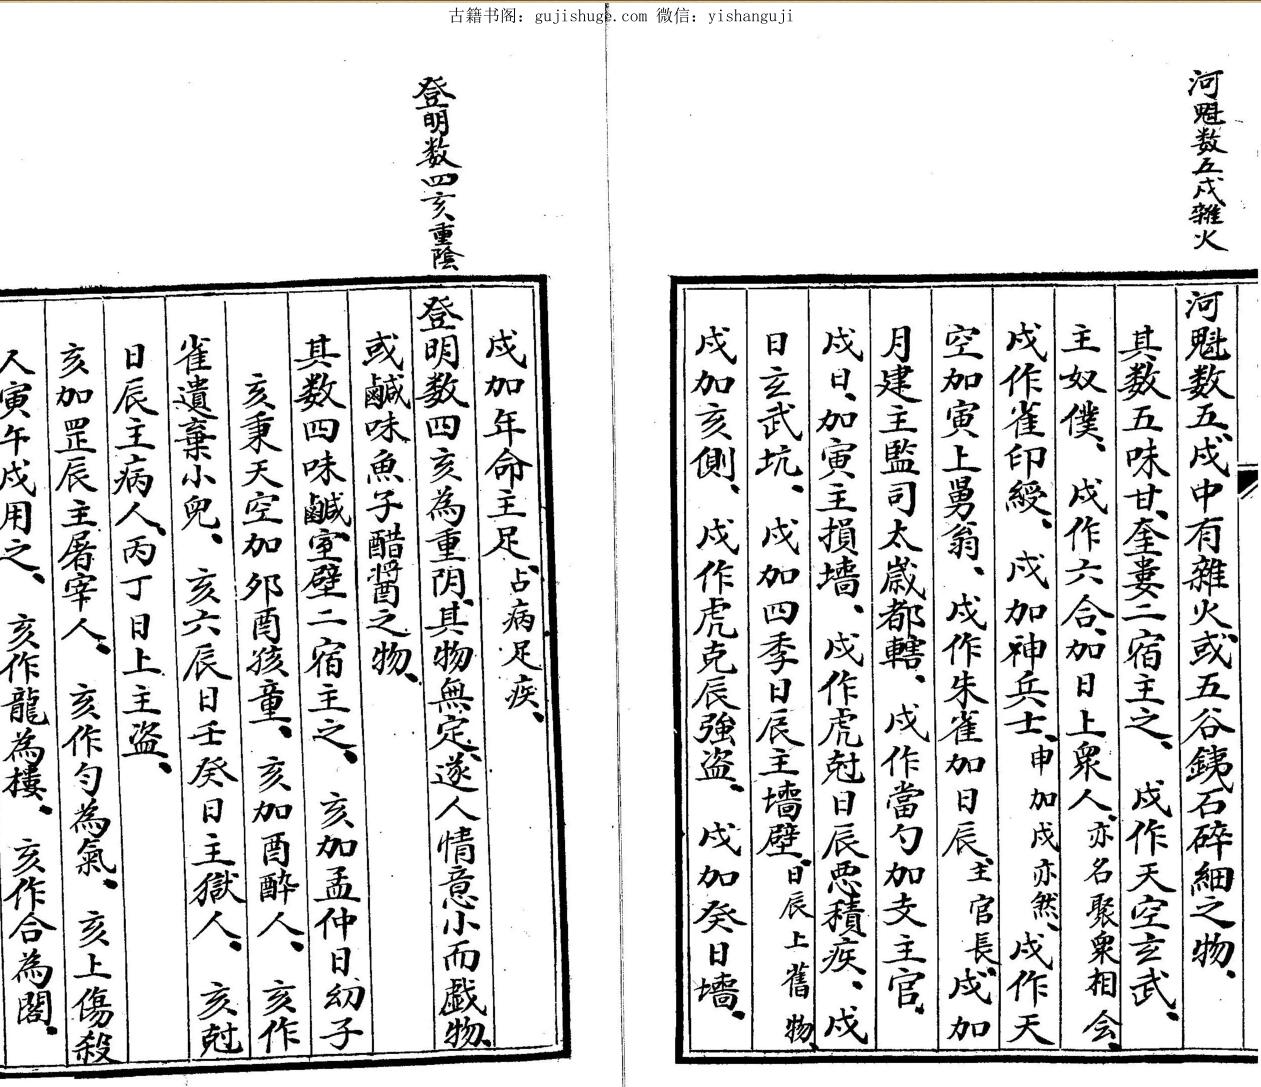 古籍书阁：gujishuge.com 微信：yishanguji
河魁数五戌雜火
河魁数五、戌中有雜火或五谷銕石碎細之物、
其数五味甘、奎婁二宿主之、戌作天空玄武、
主奴僕、戌作六合、加日上衆人、亦名聚衆相会、
戌作雀印綬、戌加神兵士、申加戌亦然、戌作天
空加寅上舅翁、戌作朱雀加日辰、主官長、戌加
月建主監司太歲都轄、戌作當勺加支主官、
戌日、加寅主損墻、戌作虎尅日辰悪積疾、戌
日玄武坑、戌加四季日辰主墻壁、日辰上舊物、
戌加亥側、戌作虎克辰強盗、戌加癸日墻、
登明数四亥重陰
戌加年命主足、占病足疾、
登明数四亥為重阴、其物無定、遂人情意小而戯物、
或鹹味魚子醋醬之物、
其数四味鹹、室壁二宿主之、亥加孟仲日幼子
亥秉天空加夘酉孩童、亥加酉醉人、亥作
雀遺棄小兒、亥六辰日壬癸日主獄人、亥尅
日辰主病人、丙丁日上主盗、
亥加罡辰主屠宰人、亥作勺為氣、亥上傷殺
人寅午戌用之、亥作龍為樓、亥作合為閣、